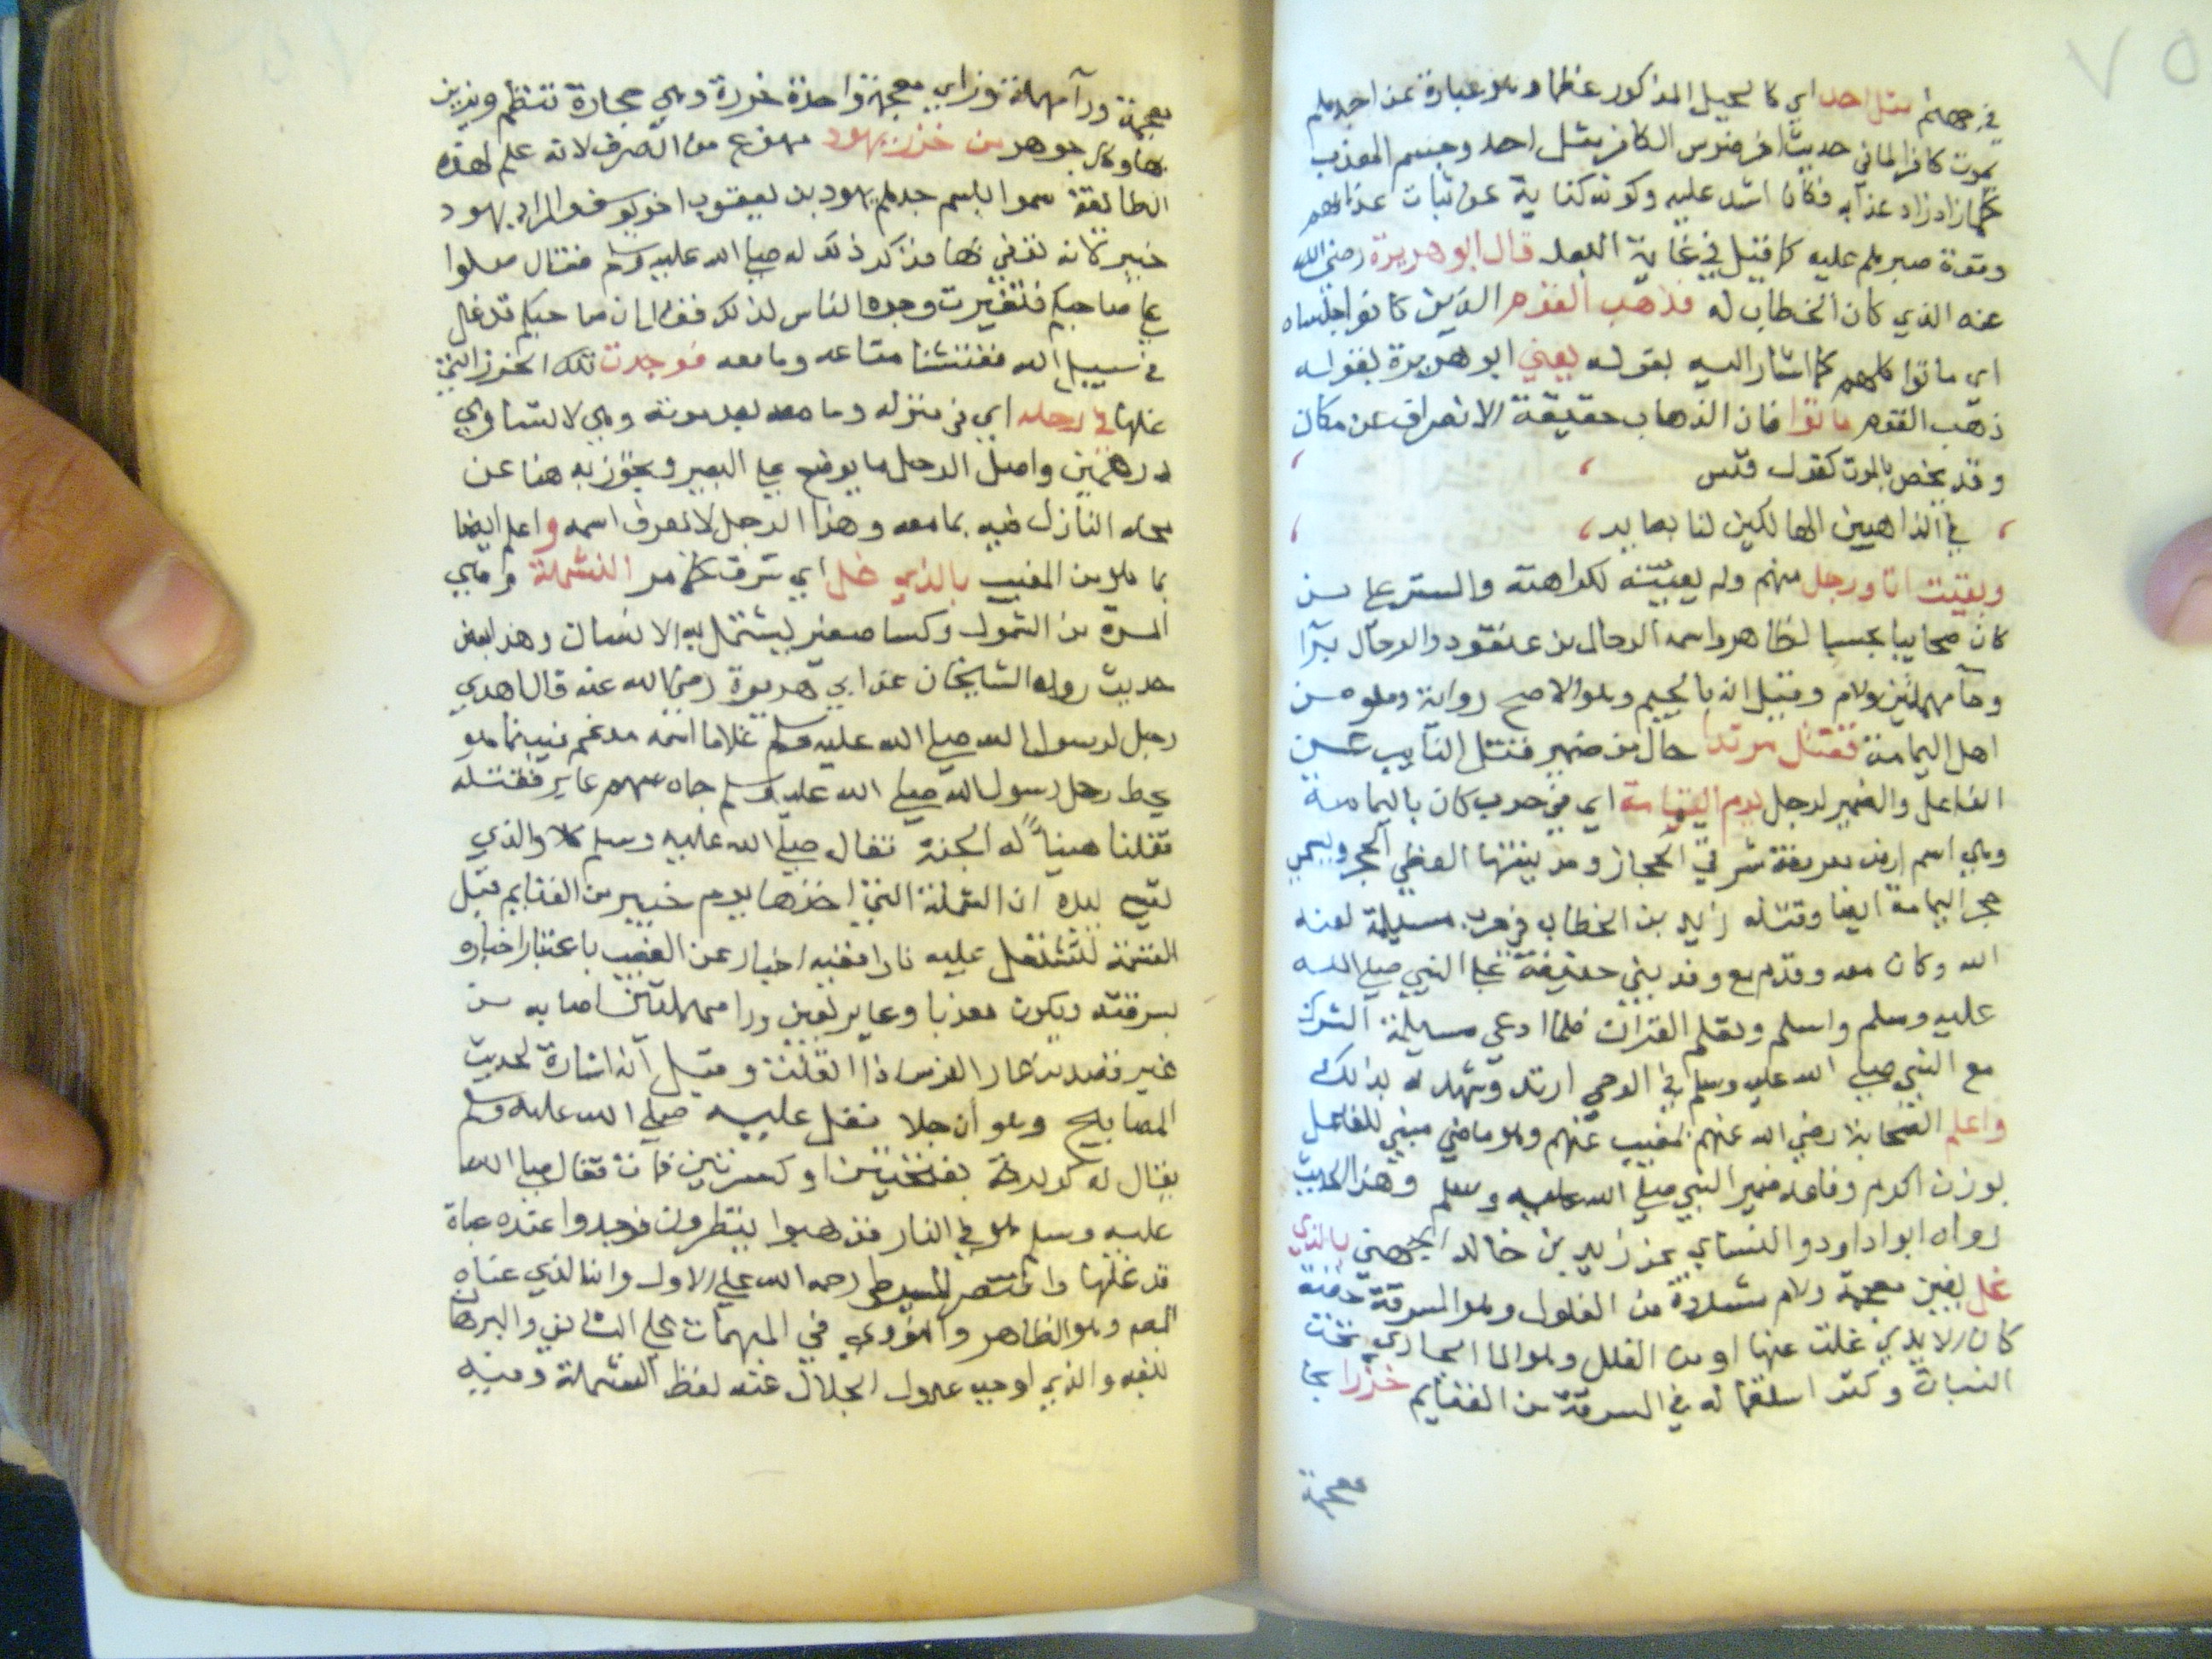 في جهنم مثل احد اي كالجبل المذكور عظما وهو عبارة عن احدهم
يموت كافرا لما في حديث اخر ضرس الكافر مثل احد وجسم المعذب
كلما زاد زاد عذابه فكان اشد عليه وكونه كناية عن ثبات عذابهم
وقوة صبرهم عليه كما قيل في غاية البعد قال ابو هريرة رضي الله
عنه الذي كان الخطاب له فذهب القوم الذين كانوا جلساه
اي ماتوا كلهم كما اشار اليه بقوله يعني ابو هريرة بقوله
ذهب القوم ماتوا فان الذهاب حقيقة الانصراف عن مكان
وقد يخص بالموت كقول قس
في الذاهبين الهالكين لنا بصاير
وبقيت انا ورجل منهم ولم يعينه لكراهته والستر على من
كان صحابيا بحسب الظاهر واسمه الرحال بن عنفود والرحال برا
وحآ مهملتين ولام وقيل انه بالجيم وهو الاصح رواية وهو من
اهل اليمامة فقتل مرتدا حال من ضمير فقتل النايب عن
الفاعل والضمير لرجل يوم اليمامة اي في حرب كان باليمامة
وهي اسم ارض معروفة شرقي الحجاز ومدينتها العظمى الحجر ويسمى
حجر اليمامة ايضا وقتله زيد بن الخطاب في حرب مسيلمة لعنه
الله وكان معه وقدم مع وفد بني حنيفة على النبي صلى الله
عليه وسلم واسلم وتعلم القران فلما ادعى مسيلمة الشرك
مع النبي صلى الله عليه وسلم في الوحي ارتد وشهد له بذالك
واعلم الصحابة رضي الله عنهم المغيب عنهم وهو ماضي مبني للفاعل
بوزن اكرم وفاعله ضمير النبي صلى الله عليه وسلم وهذا الحديث
رواه ابوا داود والنساي عن زيد بن خالد الجهني بالذي
غل بغين معجمة ولام مشددة من الغلول وهو السرقة خفية
كان الايدي غلت عنها او من الغلل وهو الما الجاري تحت
النبات وكثر استعماله في السرقة من الغنايم خرزا بخا
معجمة
معجمة ورآ مهملة وزاي معجمة واحدة خرزة وهي حجارة تنظم ويزين
بها وكل جوهر من خرز يهود ممنوع من الصرف لانه علم لهذه
الطائفة سموا باسم جدهم يهود بن يعقوب اخو يوسف والمراد يهود
خيبر كانه توفي بها فذكر ذلك له صلى الله عليه وسلم فقال صلوا
على صاحبكم فتغيرت وجوه الناس لذلك فقال ان صاحبكم قد غل
في سبيل الله ففتشنا متاعه وما معه فوجدت تلك الخرز التي
غلها في رحله اي في منزله وما معه بعد موته وهي لا تساوي
درهمين واصل الرحل ما يوضع على البعير وتجوز به هنا عن
محله النازل فيه بما معه وهذا الرجل لا نعرف اسمه واعلم ايضا
بما هو من المغيب بالذي غل اي سرق كما مر الشملة وهي
المرة من الشمول وكسا صغير يشتمل به الانسان وهذا بعض
حديث رواه الشيخان عن ابي هريرة رضي الله عنه قال اهدي
رجل لرسول الله صلى الله عليه وسلم غلاما اسمه مدغم فبينما هو
يحط رحل رسول الله صلى الله عليه وسلم جاه سهم عاير فقتله
فقلنا هنيأ له الجنة فقال صلى الله عليه وسلم كلا والذي
نفسي بيده ان الشملة التي اخذها يوم خيبر من الغنايم قبل
القسمة لتشتعل عليه نارا ففيه اخبار عن الغيب باعتبار اخباره
بسرقته ويكون معذبا وعاير بعين ورا مهملتين اصابه من
غير قصد من عار الفرس اذا انفلت وقيل انه اشارة لحديث
المصابيح وهو ان رجلا نفل عليه صلى الله عليه وسلم
يقال له كركرة بفتحتين او كسرتين فمات فقال صلى الله
عليه وسلم هو في النار فذهبوا ينظرون فوجدوا عنده عباة
قد غلها واقتصر السيوطي رحمه الله على الاول وانه الذي عناه
المص وهو الظاهر والنووي في المبهمات على الثاني والبرهان
لفظ الشملة وفيه